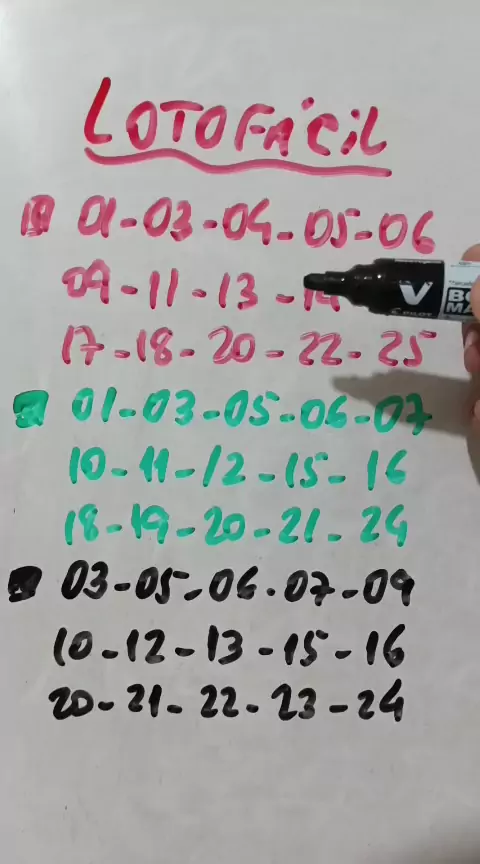 LOTOFÁCIL
01-03-04-05-06
09-11-13-14
17-18-20-22-25
01-03-05-06-07
10-11-12-15-16
18-19-20-21-24
03-05-06.07-09
10-12-13-15-16
20-21-22-23-24
V
PILOT